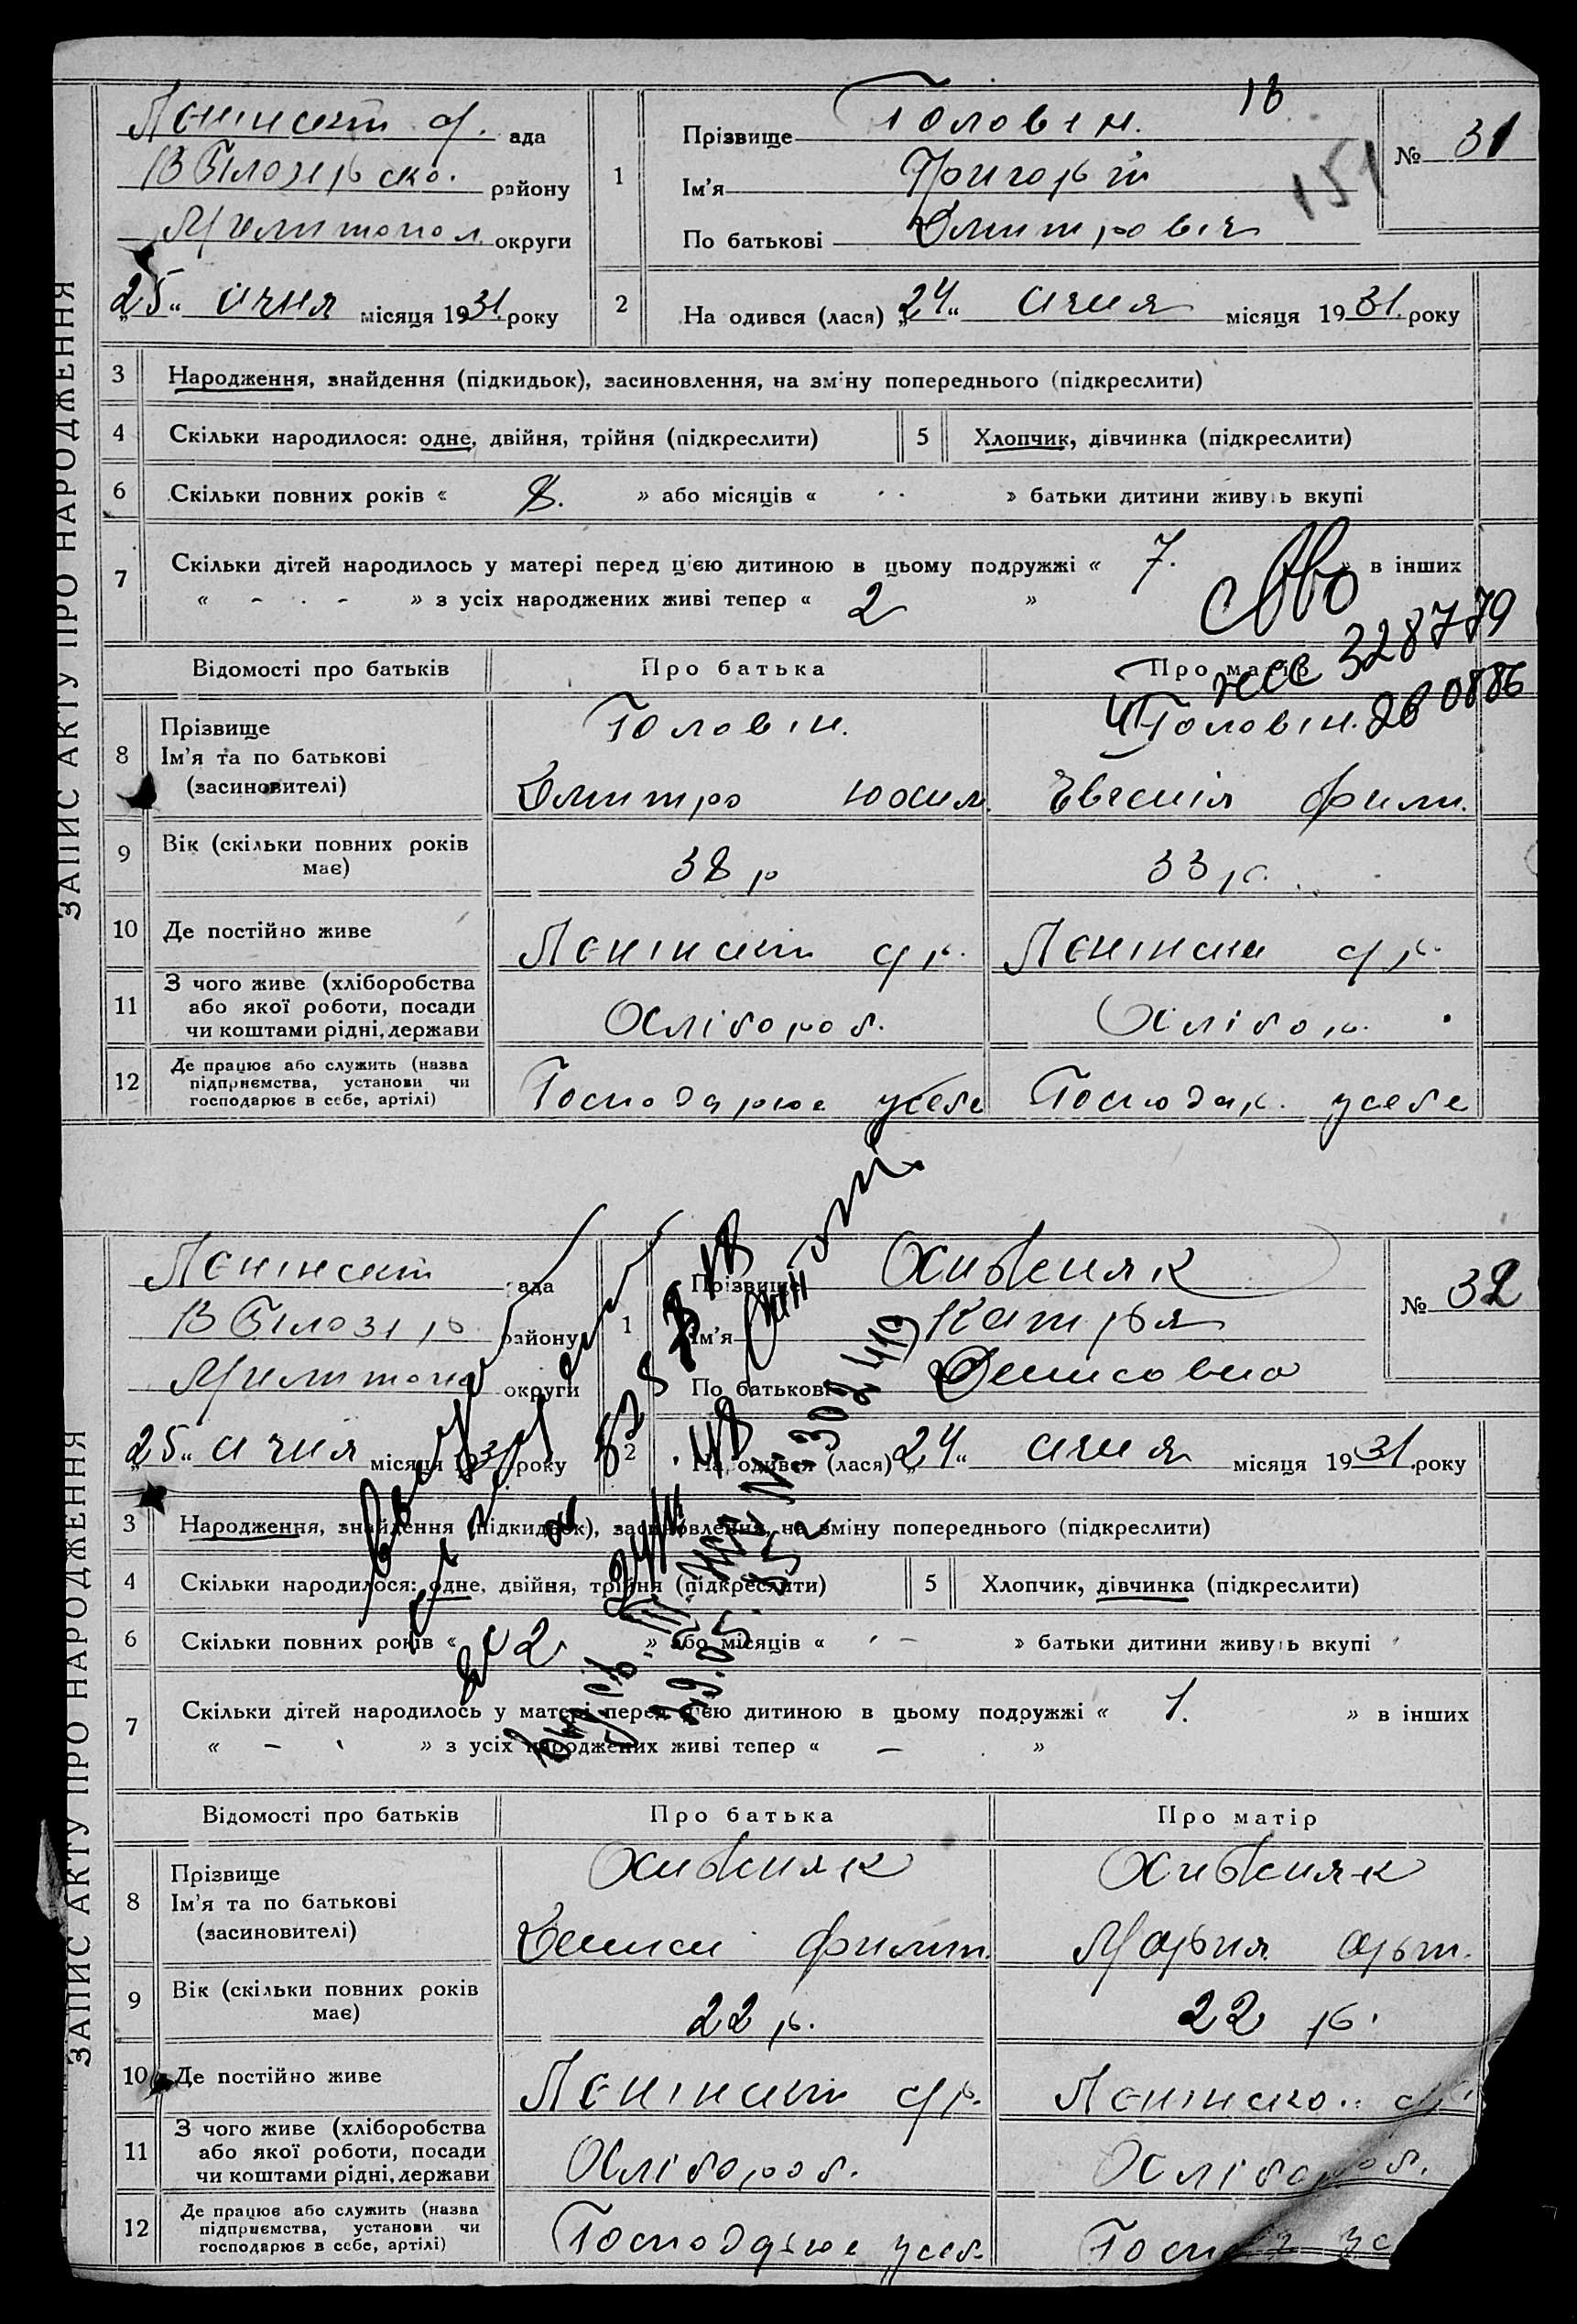 ЗАПИС АКТУ ПРО НАРОДЖЕННЯ
Лєнінскт ада
В Білозірско. району
Мелитопол. округи
"25" січня місяця 1931 року
1
Прізвище Головін. 18
Ім'я Григорій 151
По батькові Дмитровіч
№ 31
2 На одився (лася) "24" січня місяця 1931. року
3 Народження, знайдення (підкидьок), засиновлення, на зміну попереднього (підкреслити)
4 Скільки народилося: одне, двійня, трійня (підкреслити)
5 Хлопчик, дівчинка (підкреслити)
6 Скільки повних років « 8. » або місяців « » батьки дитини живуть вкупі
7 Скільки дітей народилось у матері перед ц'єю дитиною в цьому подружжі « 7. » в інших
« - . - » з усіх народжених живі тепер « 2 »
328779
Відомості про батьків Про батька Про матір
260886
8 Прізвище
Ім'я та по батькові
(засиновителі)
Головін. Головін.
Дмитро Юхим. Евгенія Фили.
9 Вік (скільки повних років має) 38 р 33 р.
10 Де постійно живе Лєнінскт Лєнінскт
11 З чого живе (хліборобства або якої роботи, посади чи коштами рідні, держави Хлібороб. Хлібор.
12 Де працює або служить (назва підприємства, установи чи господарює в себе, артілі) Господарює усебе Господар. усебе
ЗАПИС АКТУ ПРО НАРОДЖЕННЯ
Лєнінскт ада
В Білозір району
Мелитопо округи
"25" січня місяця 1931 року
1
Прізвище Хивжняк
Ім'я Катря
По батькові Денисовна
№ 32
2 На одився (лася) "24" січня місяця 1931. року
3 Народження, знайдення (підкидьок), засиновлення, на зміну попереднього (підкреслити)
4 Скільки народилося: одне, двійня, трійня (підкреслити)
5 Хлопчик, дівчинка (підкреслити)
6 Скільки повних років « 2 » або місяців « - » батьки дитини живуть вкупі
7 Скільки дітей народилось у матері перед ц'єю дитиною в цьому подружжі « 1. » в інших
« - » з усіх народжених живі тепер « - »
Відомості про батьків Про батька Про матір
8 Прізвище
Ім'я та по батькові
(засиновителі)
Хивжняк Хивжняк
Денис Филип. Марія Арт.
9 Вік (скільки повних років має) 22 р. 22 р.
10 Де постійно живе Лєнінскт Лєнінско
11 З чого живе (хліборобства або якої роботи, посади чи коштами рідні, держави Хлібороб. Хлібороб.
12 Де працює або служить (назва підприємства, установи чи господарює в себе, артілі) Господарює усеб.